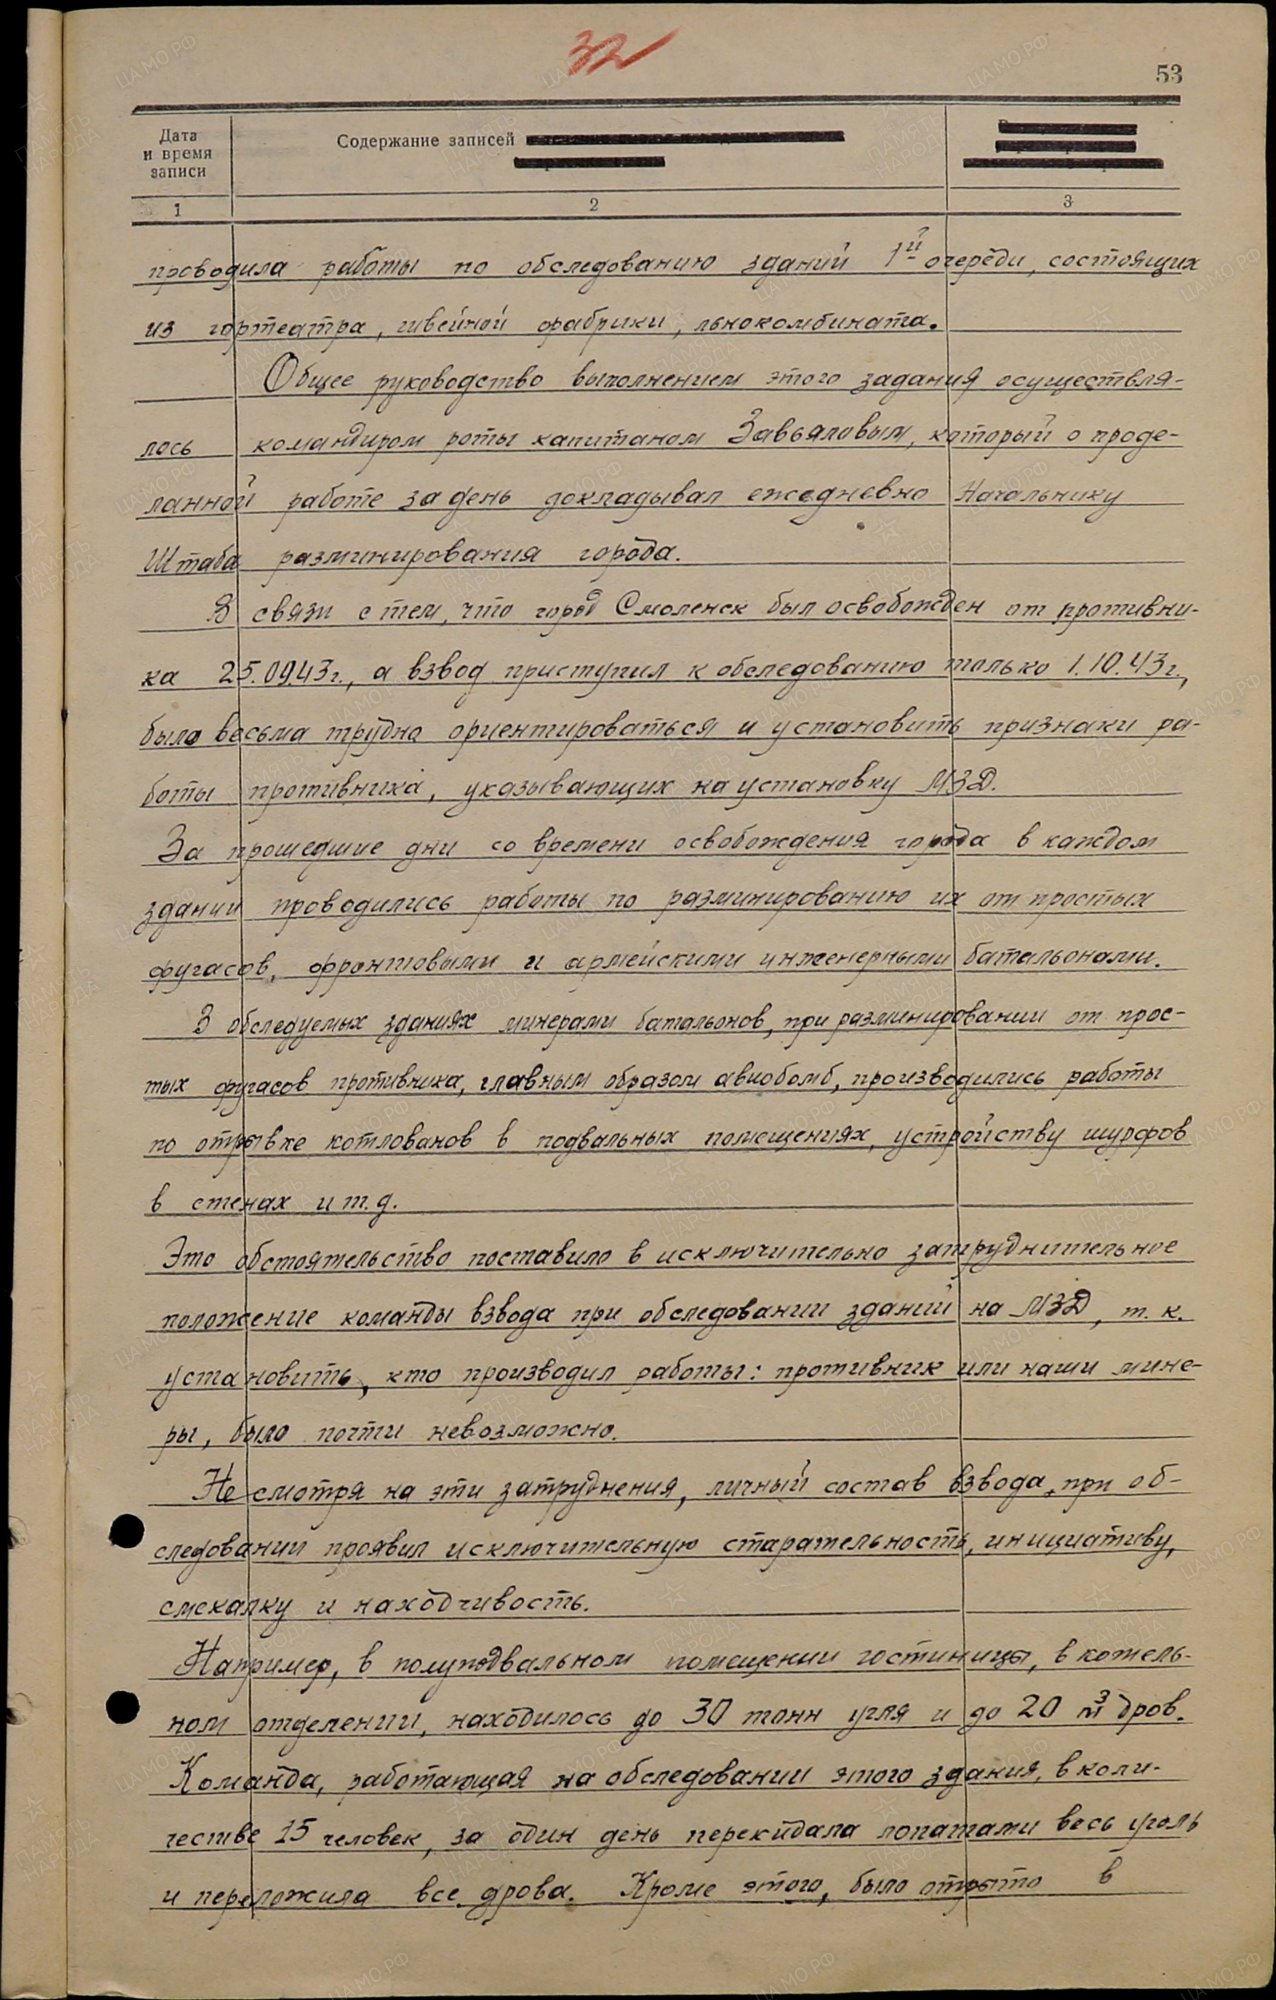 32
53
Дата
и время
записи
Содержание записей
1
2
3
проводила работы по обследованию зданий 1й очереди, состоящих
из гортеатра, швейной фабрики, льнокомбината.
Общее руководство выполнением этого задания осуществля-
лось командиром роты капитаном Завьяловым, который о проде-
ланной работе за день докладывал ежедневно Начальнику
Штаба разминирования города.
В связи с тем, что город Смоленск был освобожден от противни-
ка 25.09.43г., а взвод приступил к обследованию только 1.10.43г.,
было весьма трудно ориентироваться и установить признаки ра-
боты противника, указывающих на установку МЗД.
За прошедшие дни со времени освобождения города в каждом
здании проводились работы по разминированию их от простых
фугасов, фронтовыми и армейскими инженерными батальонами.
В обследуемых зданиях минерами батальонов, при разминировании от прос-
тых фугасов противника, главным образом авиобомб, производились работы
по отрывке котлованов в подвальных помещениях, устройству шурфов
в стенах и т.д.
Это обстоятельство поставило в исключительно затруднительное
положение команды взвода при обследовании зданий на МЗД, т.к.
установить, кто производил работы: противник или наши мине-
ры, было почти невозможно.
Не смотря на эти затруднения, личный состав взвода, при об-
следовании проявил исключительную старательность, инициативу,
смекалку и находчивость.
Например, в полуподвальном помещении гостиницы, в котель-
ном отделении, находилось до 30 тонн угля и до 20 м3 дров.
Команда, работающая на обследовании этого здания, в коли-
честве 15 человек, за один день перекидала лопатами весь уголь
и переложила все дрова. Кроме этого, было отрыто в